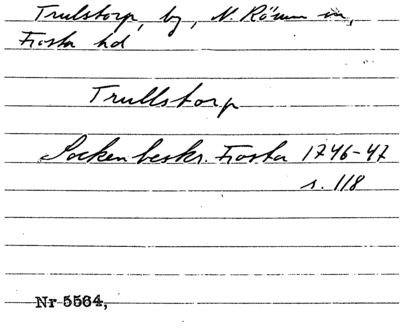 Trulstorp, by, N. Rörum sn,
Frosta hd
Trullstorp
Sockenbeskr. Frosta 1746-47
s. 118
Nr 5564,